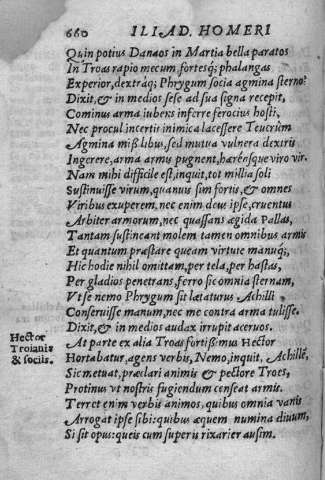 660 ILIAD. HOMERI
Quin potius Danaos in Martia bella paratos
In Troas rapio mecum, fortesq́; phalangas
Experior, dextráq; Phrygum socia agmina sterno?
Dixit, & in medios sese ad sua signa recepit,
Cominus arma iubens inferre ferocius hosti,
Nec procul incerti inimica lacessere Teucrûm
Agmina mißilibus, sed mutua vulnera dextris
Ingerere, arma armis pugnent, hærénsque viro vir.
Nam mihi difficile est, inquit, tot millia soli
Sustinuisse virum, quanuis sim fortis, & omnes
Viribus exuperem, nec enim deus ipse, cruentus
Arbiter armorum, nec quassans ægida Pallas,
Tantam sustineant molem tamen omnibus armis
Et quantum præstare queam virtute manuq́;
Hic hodie nihil omittam, per tela, per hastas,
Per gladios penetrans, ferro sic omnia sternam,
Vt se nemo Phrygum sit lætaturus Achilli
Conseruisse manum, nec me contra arma tulisse.
Dixit, & in medios audax irrupit aceruos.
Hector Troianis & sociis.
At parte ex alia Troas fortißimus Hector
Hortabatur, agens verbis, Nemo, inquit, Achillē,
Sic metuat, præclari animis & pectore Troes,
Protinus vt nostris fugiendum censeat armis.
Terret enim verbis animos, quibus omnia vanis
Arrogat ipse sibi: quibus æquem numina diuum,
Si sit opus: queis cum superis rixarier ausim.